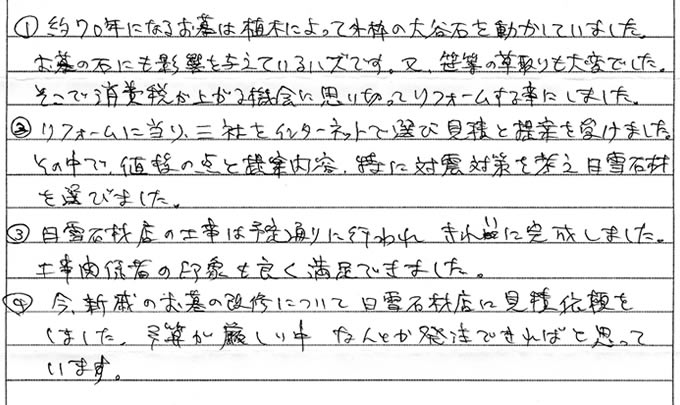 ① 約70年になるお墓は植木によって外枠の大谷石を動かしていました。
お墓の石にも影響を与えているハズです。又、笹等の草取りも大変でした。
そこで消費税が上がる機会に思い切ってリフォームする事にしました。
② リフォームに当り、三社をインターネットで選び見積と提案を受けました。
その中で、値段の点と提案内容、特に対震対策を考え日雪石材
を選びました。
③ 日雪石材店の工事は予定通りに行われ きれいに完成しました。
工事関係者の印象も良く満足できました。
④ 今、新しい のお墓の改修について日雪石材店に見積依頼を
しました。予算が厳しい中 なんとか発注できればと思って
います。